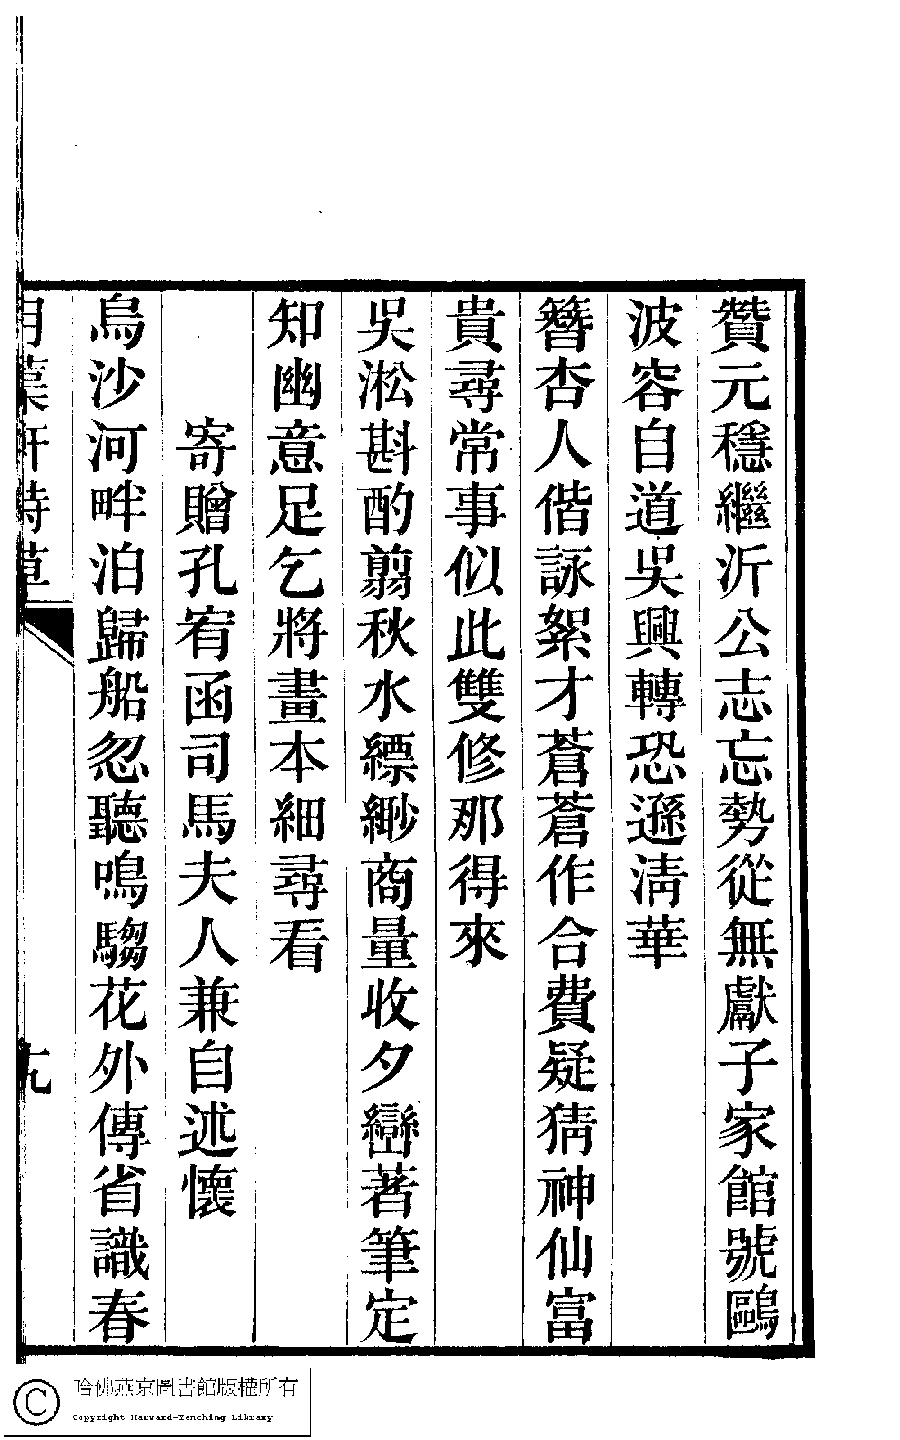 贊元穩繼沂公志忘勢從無獻子家館號鷗
波容自道吳興轉恐遜淸華
簪杏人偕詠絮才蒼蒼作合費疑猜神仙富
貴尋常事似此雙修那得來
吳淞斟酌翦秋水縹緲商量收夕巒著筆定
知幽意足乞將畫本細尋看
寄贈孔宥函司馬夫人兼自述懷
烏沙河畔泊歸船忽聽鳴騶花外傳省識春
軒詩草
九
哈佛燕京圖書館版權所有
Copyright Harvard-Yenching Library